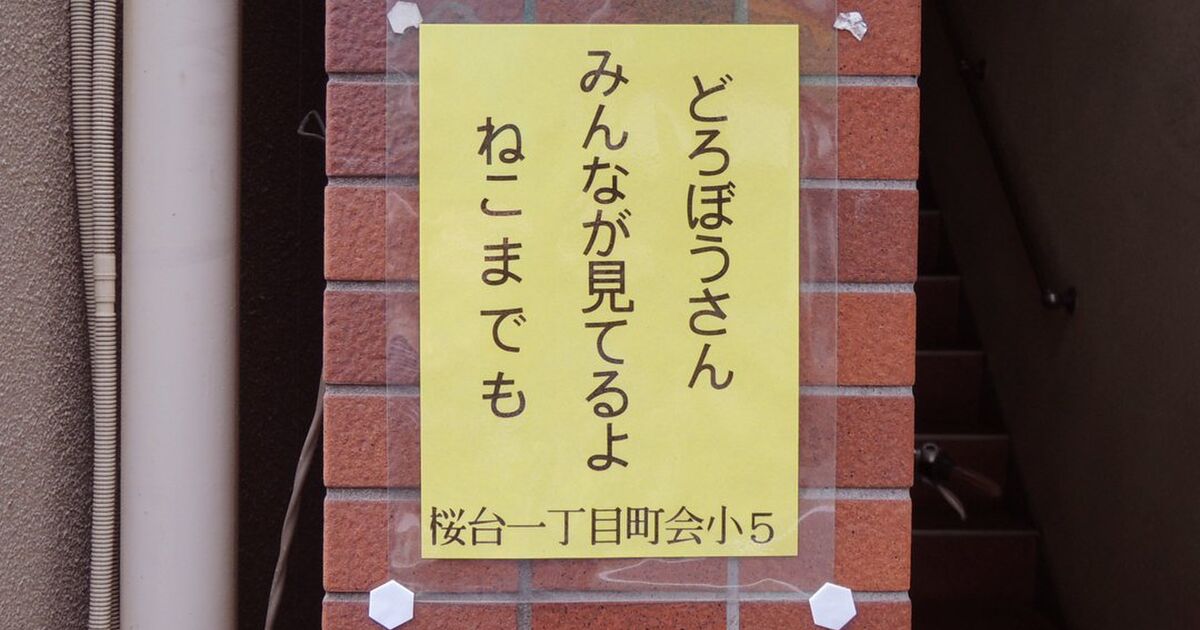 どろぼうさん
みんなが見てるよ
ねこまでも
桜台一丁目町会小5